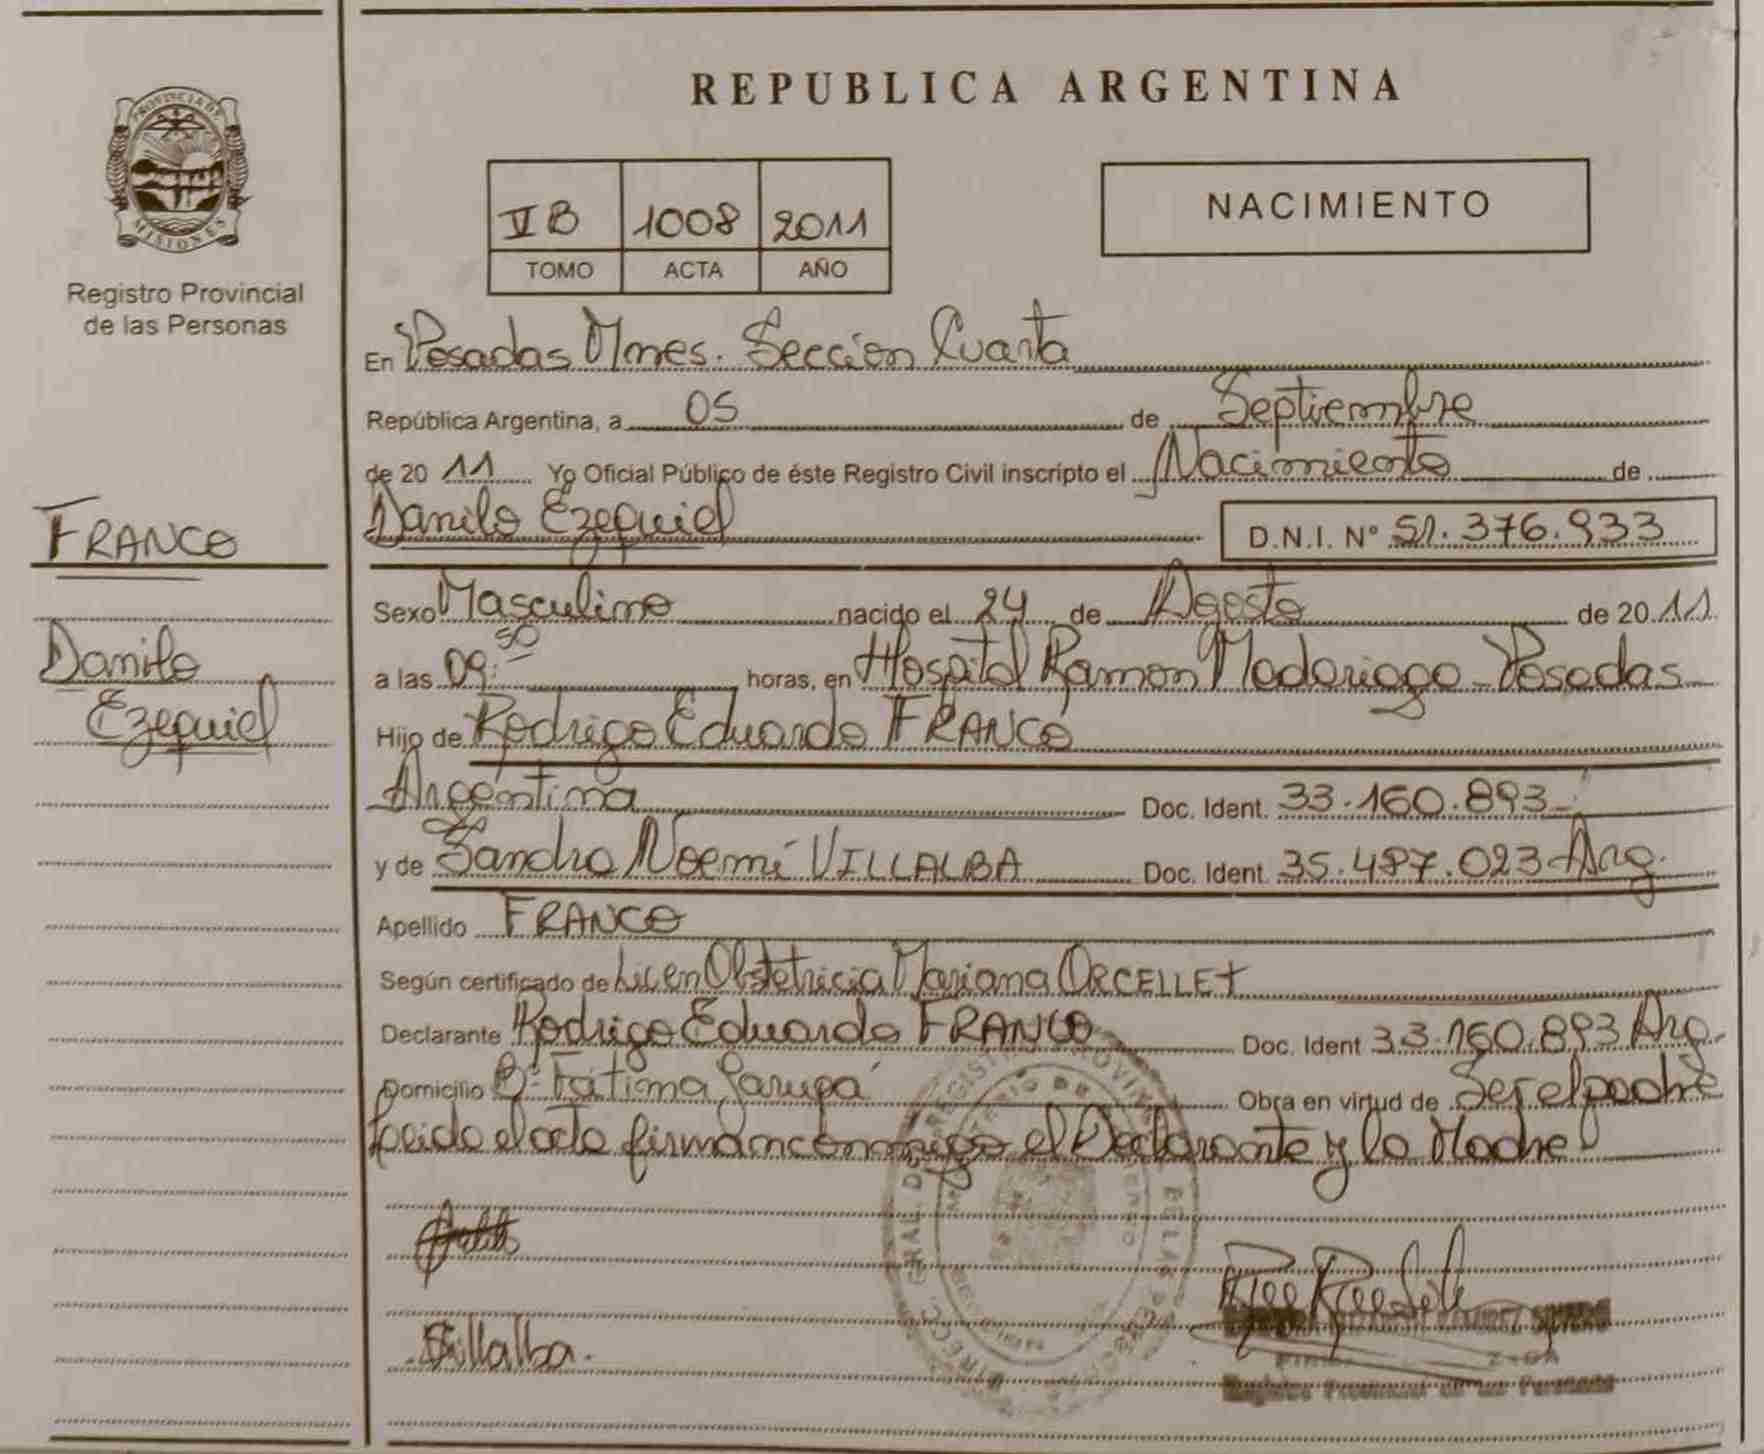 PROVINCIA DE
MISIONES
Registro Provincial
de las Personas
FRANCO
Danilo
Ezequiel
REPUBLICA ARGENTINA
VB 1008 2011
TOMO ACTA AÑO
NACIMIENTO
En Posadas Mnes. Seccion Cuarta
República Argentina, a 05 de Septiembre
de 20 11 Yo Oficial Público de éste Registro Civil inscripto el Nacimiento de
Danilo Ezequiel D.N.I. Nº 51.376.933
Sexo Masculino nacido el 24 de Agosto de 20 11
a las 09:50 horas, en Hospital Ramon Madariaga - Posadas
Hijo de Rodrigo Eduardo FRANCO
Argentina Doc. Ident. 33.160.893-
y de Sandra Noemí VILLALBA Doc. Ident. 35.487.023 Arg.
Apellido FRANCO
Según certificado de Lic en Obstetricia Mariana ORCELLET
Declarante Rodrigo Eduardo FRANCO Doc. Ident 33.160.893 Arg.
Domicilio Bº Fátima Garupá Obra en virtud de Ser el padre
Leido el acta firman conmigo el Declarante y la Madre
Villalba.
Registro Provincial de las Personas